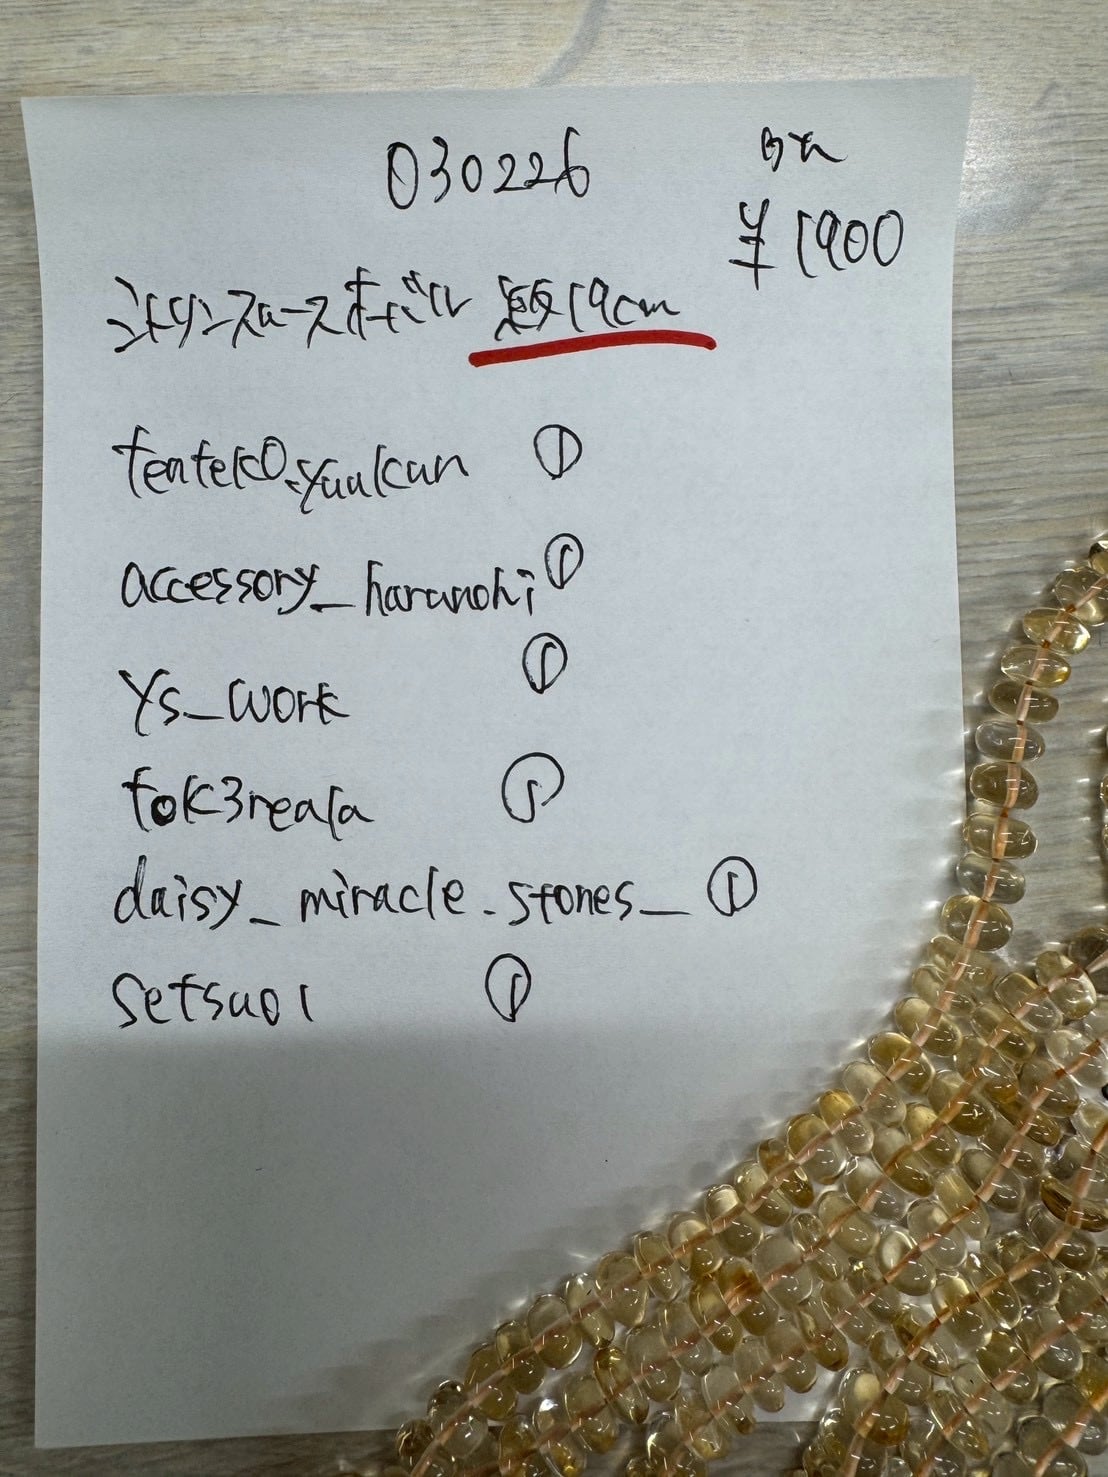 030226
¥1900
シトリンスムースボタン 短19cm
tenteko.yuukun ①
accessory_haranohi ①
ys_work ①
tok3reala ①
daisy_miracle.stones_ ①
setsu01 ①